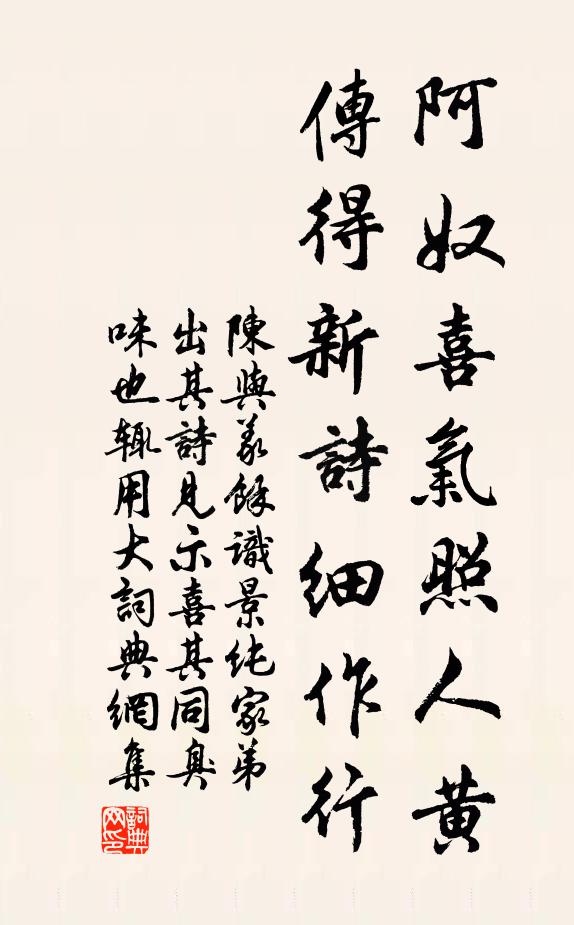 阿奴喜氣照人黃
傳得新詩細作行
陳與義餘識景純家弟
出其詩見示喜其同臭
味也輒用大詞典網集
詞典網印